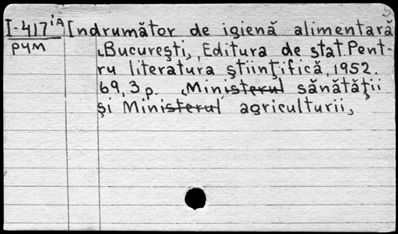 I-417 iA Îndrumător de igienă alimentară
РУМ București, Editura de stat Pent-
ru literatura științifică, 1952.
69,3 p. Ministerul sănătății
și Ministerul agriculturii,